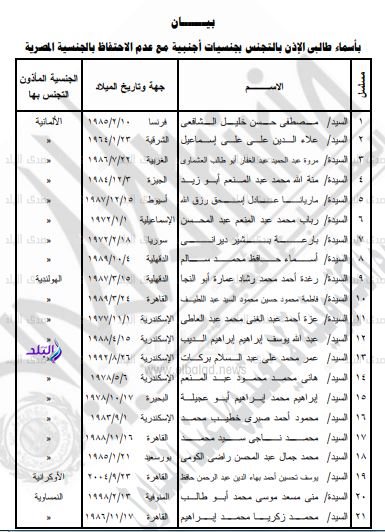 بيـــــان
بأسماء طالبى الإذن بالتجنس بجنسيات أجنبية مع عدم الاحتفاظ بالجنسية المصرية
مسلسل الاســـــم جهة وتاريخ الميلاد الجنسية المأذون التجنس بها
١ السيد/ مصطفى حسن خليل الشافعى فرنسا ١٩٨٥/٢/١٠ الألمانية
٢ السيد/ علاء الدين على على إسماعيل الشرقية ١٩٦٤/١/٢٣ »
٣ السيدة/ مروة عبد الحميد عبد الغفار أبو طالب العشماوى الغربية ١٩٨٦/٢/٢٢ »
٤ السيدة/ منة الله محمد عبد المنعم أبو زيد الجيزة ١٩٨٤/١٢/٣ »
٥ السيدة/ ماريانا عادل إسحق رزق الله أسيوط ١٩٨٧/١٢/١٥ »
٦ السيدة/ رباب محمد عبد المنعم عبد المحسن الإسماعيلية ١٩٧٢/١/١ »
٧ السيدة/ بارعة بشير ديرانى سوريا ١٩٧٢/٢/١٨ »
٨ السيدة/ أسماء حافظ محمد سالم الدقهلية ١٩٨٩/١٠/٤ »
٩ السيدة/ رغدة أحمد محمد رشاد عمارة أبو النجا الدقهلية ١٩٨٧/٣/١٥ الهولندية
١٠ السيدة/ فاطمة محمود حسين محمود السيد عبد اللطيف القاهرة ١٩٨٩/٣/٢٤ »
١١ السيدة/ عزة أحمد عبد الغنى محمد عبد العاطى الإسكندرية ١٩٧٧/١١/١ »
١٢ السيد/ عبد الله يوسف إبراهيم إبراهيم الديب الإسكندرية ١٩٨٨/٤/١٥ »
١٣ السيد/ عمر محمد على عبد السلام بركات الإسكندرية ١٩٩٢/٨/٢٦ »
١٤ السيد/ هانى محمد محمود عبد المنعم الإسكندرية ١٩٧٨/٥/٦ »
١٥ السيد/ إبراهيم محمد إبراهيم أبو عجيلة البحيرة ١٩٧٨/١٠/١٧ »
١٦ السيد/ محمود أحمد صبرى خطيب محمد الإسكندرية ١٩٨٣/٩/١ »
١٧ السيد/ محمد ناجى سيد محمد القاهرة ١٩٨٨/١١/١٦ »
١٨ السيد/ محمد جمال عبد المحسن راضى الكومى بورسعيد ١٩٨٥/١/٢١ »
١٩ السيد/ يوسف تحسين أحمد بهاء الدين عبد الرحمن حافظ القاهرة ٢٠٠٤/٩/٢٣ الأوكرانية
٢٠ السيدة/ منى مسعد موسى محمد أبو طالب المنوفية ١٩٩٨/٢/١٣ النمساوية
٢١ السيد/ محمد زكريا محمد إبراهيم القاهرة ١٩٨٦/١١/١٧ »
البلد
elbalad.news